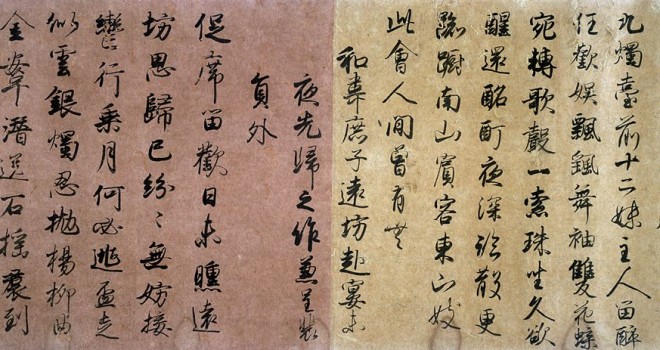 九燭臺前十二姝主人留醉
任歡娛飄颻舞袖雙飛蝶
宛轉歌聲一索珠坐久欲
醒還酩酊夜深臨散更
踟躕南山賓客東山妓
此會人間曾有無
和韋庶子遠坊赴宴未
夜先歸之作兼呈裴
員外
促席留歡日未曛遠
坊思歸已紛〻無妨按
轡行乘月何必逃盃走
似雲銀燭忍拋楊柳曲
金鞍潛送石榴裙到